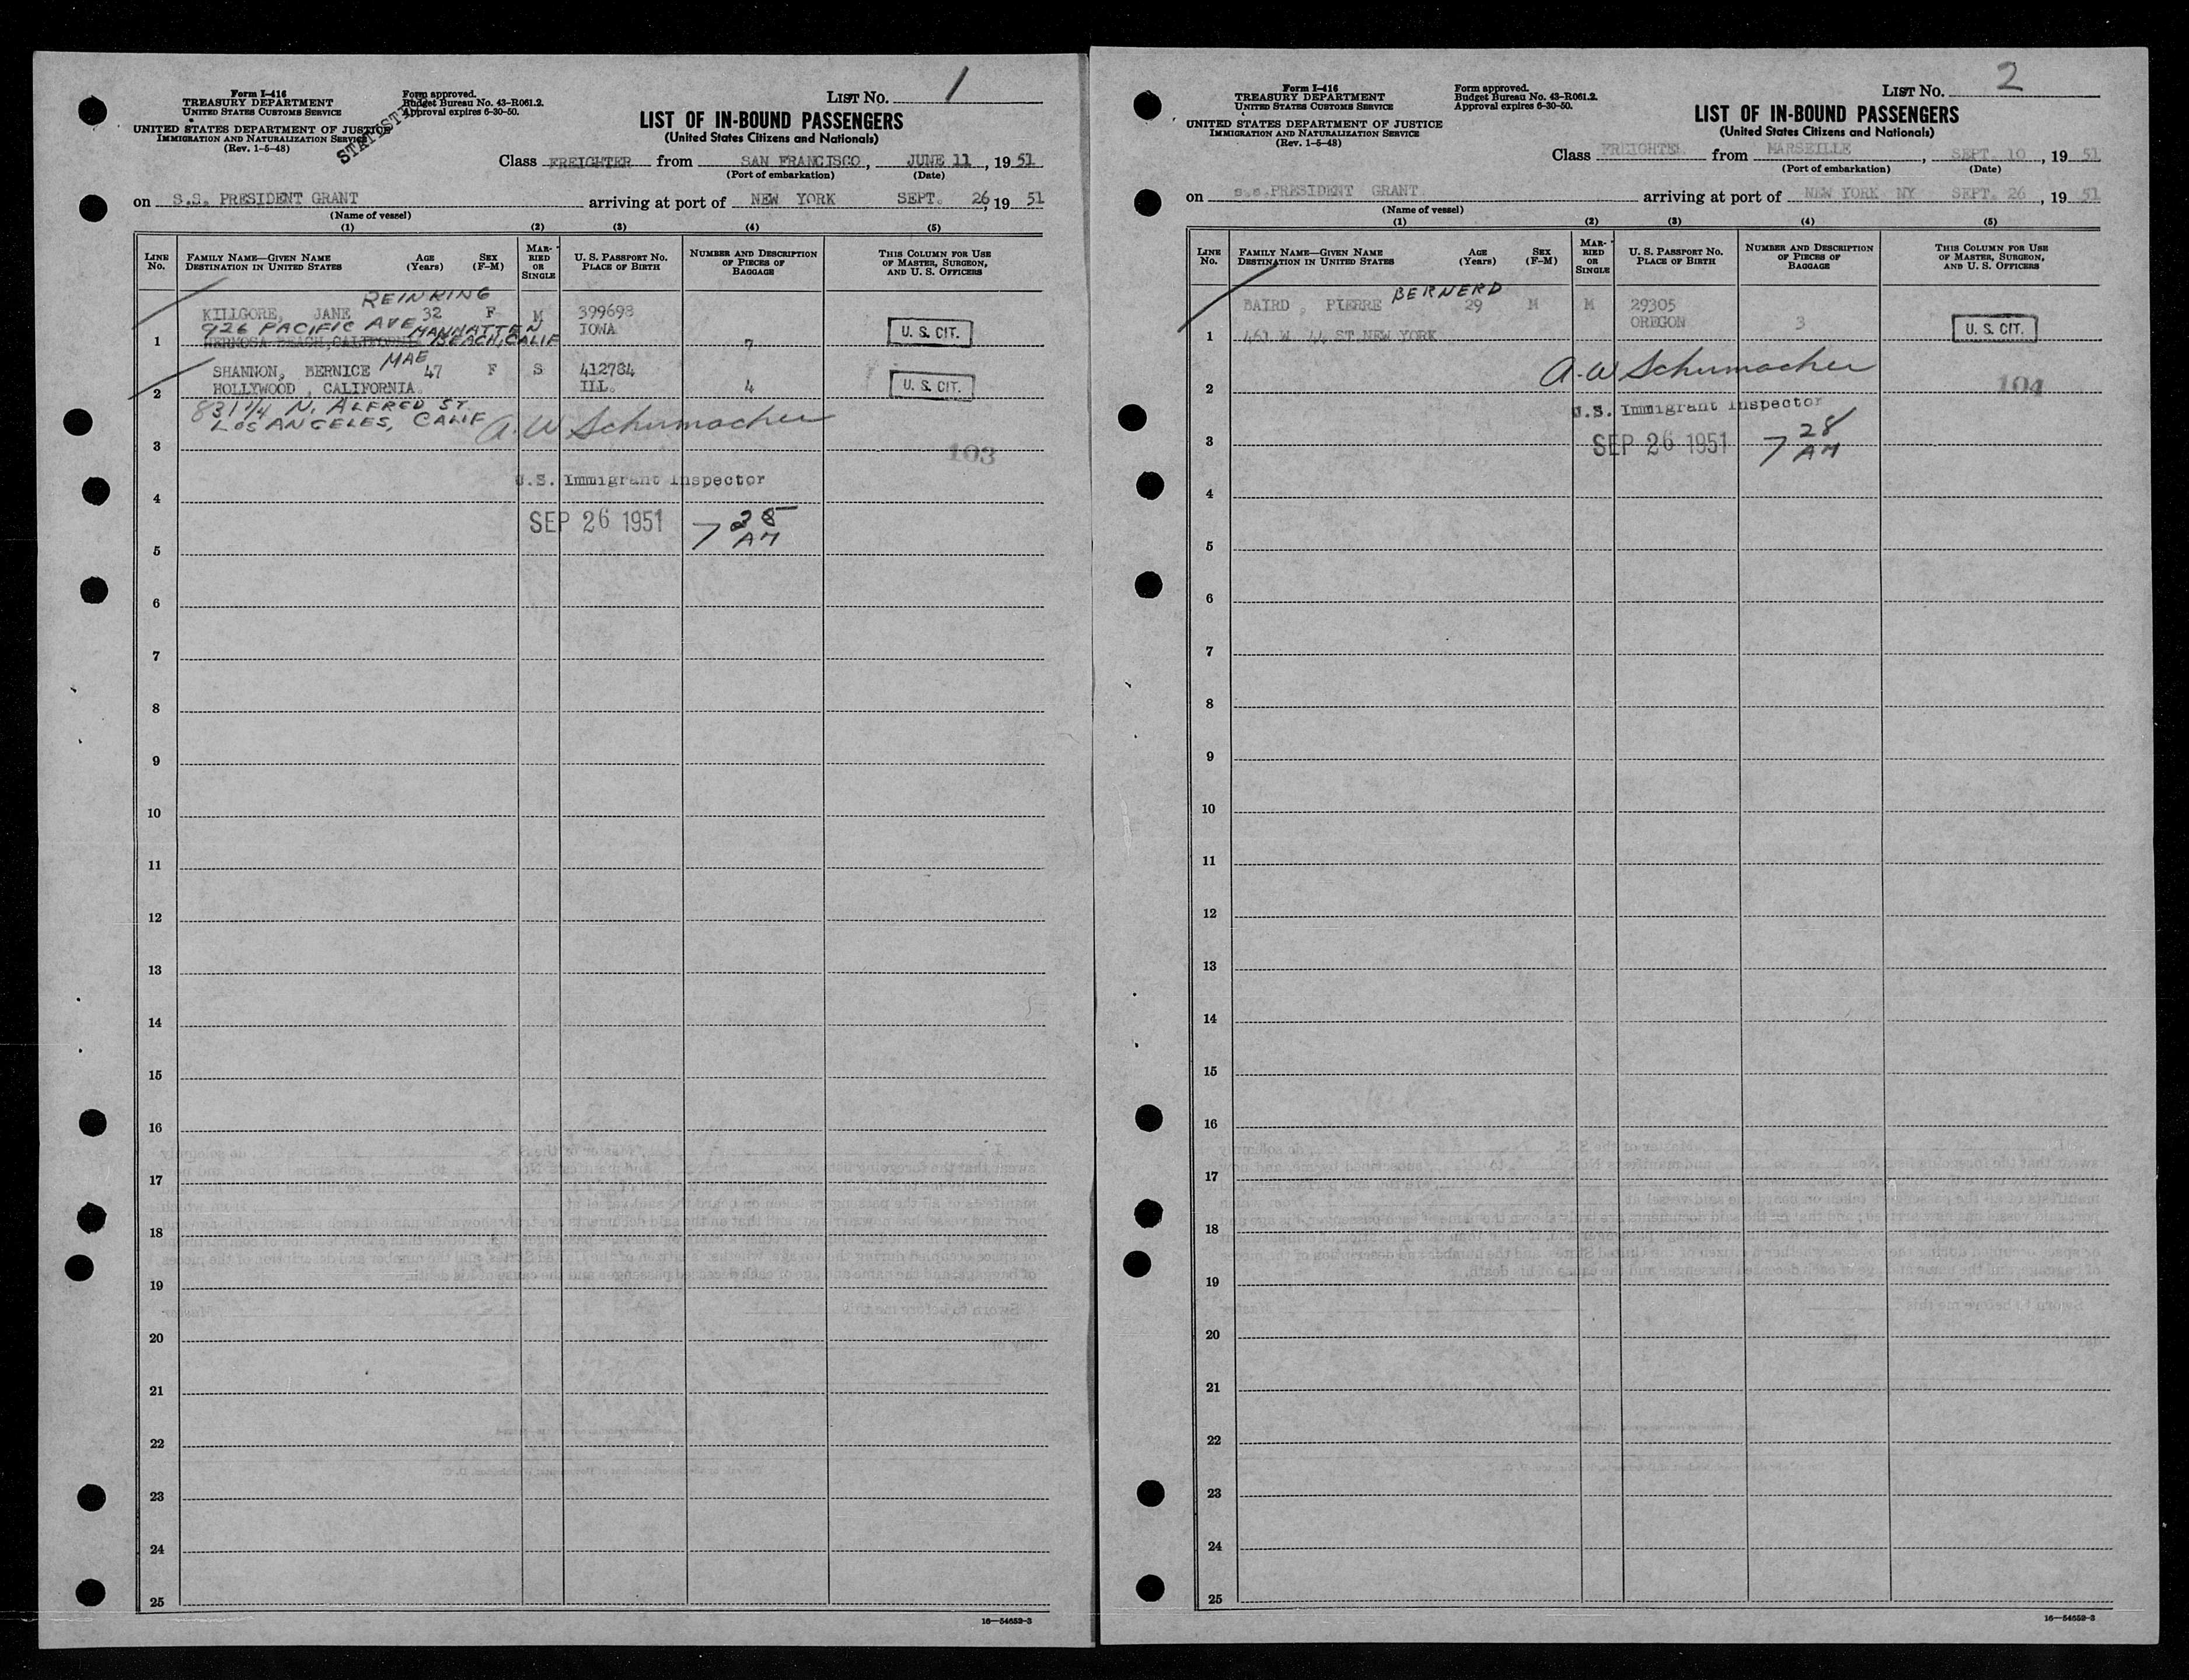 Form I-416
TREASURY DEPARTMENT
UNITED STATES CUSTOMS SERVICE
UNITED STATES DEPARTMENT OF JUSTICE
IMMIGRATION AND NATURALIZATION SERVICE
(Rev. 1-5-48)
Form approved.
Budget Bureau No. 43-R061.2.
Approval expires 6-30-50.
LIST No. 1
LIST OF IN-BOUND PASSENGERS
(United States Citizens and Nationals)
Class FREIGHTER from SAN FRANCISCO, JUNE 11, 19 51
(Port of embarkation) (Date)
on S.S. PRESIDENT GRANT arriving at port of NEW YORK SEPT. 26, 19 51
(Name of vessel)
(1) (2) (3) (4) (5)
LINE No. FAMILY NAME—GIVEN NAME DESTINATION IN UNITED STATES AGE (Years) SEX (F-M) MARRIED OR SINGLE U. S. PASSPORT No. PLACE OF BIRTH NUMBER AND DESCRIPTION OF PIECES OF BAGGAGE THIS COLUMN FOR USE OF MASTER, SURGEON, AND U. S. OFFICERS
REINKING
KILLGORE, JANE 32 F M 399698
926 PACIFIC AVE MANHATTEN IOWA U. S. CIT.
1 HERMOSA BEACH, CALIFORNIA BEACH, CALIF 7
MAE
SHANNON, BERNICE 47 F S 412784
2 HOLLYWOOD, CALIFORNIA. ILL. 4 U. S. CIT.
831 1/4 N. ALFRED ST.
LOS ANGELES, CALIF A. W Schumacher
3 103
U.S. Immigrant Inspector
4
SEP 26 1951 7 28 AM
5
6
7
8
9
10
11
12
13
14
15
16
17
18
19
20
21
22
23
24
25
16—54652-3
Form I-416
TREASURY DEPARTMENT
UNITED STATES CUSTOMS SERVICE
UNITED STATES DEPARTMENT OF JUSTICE
IMMIGRATION AND NATURALIZATION SERVICE
(Rev. 1-5-48)
Form approved.
Budget Bureau No. 43-R061.2.
Approval expires 6-30-50.
LIST No. 2
LIST OF IN-BOUND PASSENGERS
(United States Citizens and Nationals)
Class FREIGHTER from MARSEILLE, SEPT. 10, 19 51
(Port of embarkation) (Date)
on s.s. PRESIDENT GRANT arriving at port of NEW YORK NY SEPT. 26, 19 51
(Name of vessel)
(1) (2) (3) (4) (5)
LINE No. FAMILY NAME—GIVEN NAME DESTINATION IN UNITED STATES AGE (Years) SEX (F-M) MARRIED OR SINGLE U. S. PASSPORT No. PLACE OF BIRTH NUMBER AND DESCRIPTION OF PIECES OF BAGGAGE THIS COLUMN FOR USE OF MASTER, SURGEON, AND U. S. OFFICERS
BERNERD
BAIRD, PIERRE 29 M M 29305
OREGON 3 U. S. CIT.
1 461 W. 44 ST. NEW YORK
A. W Schumacher
2 104
U.S. Immigrant Inspector
3 SEP 26 1951 7 28 AM
4
5
6
7
8
9
10
11
12
13
14
15
16
17
18
19
20
21
22
23
24
25
16—54652-3